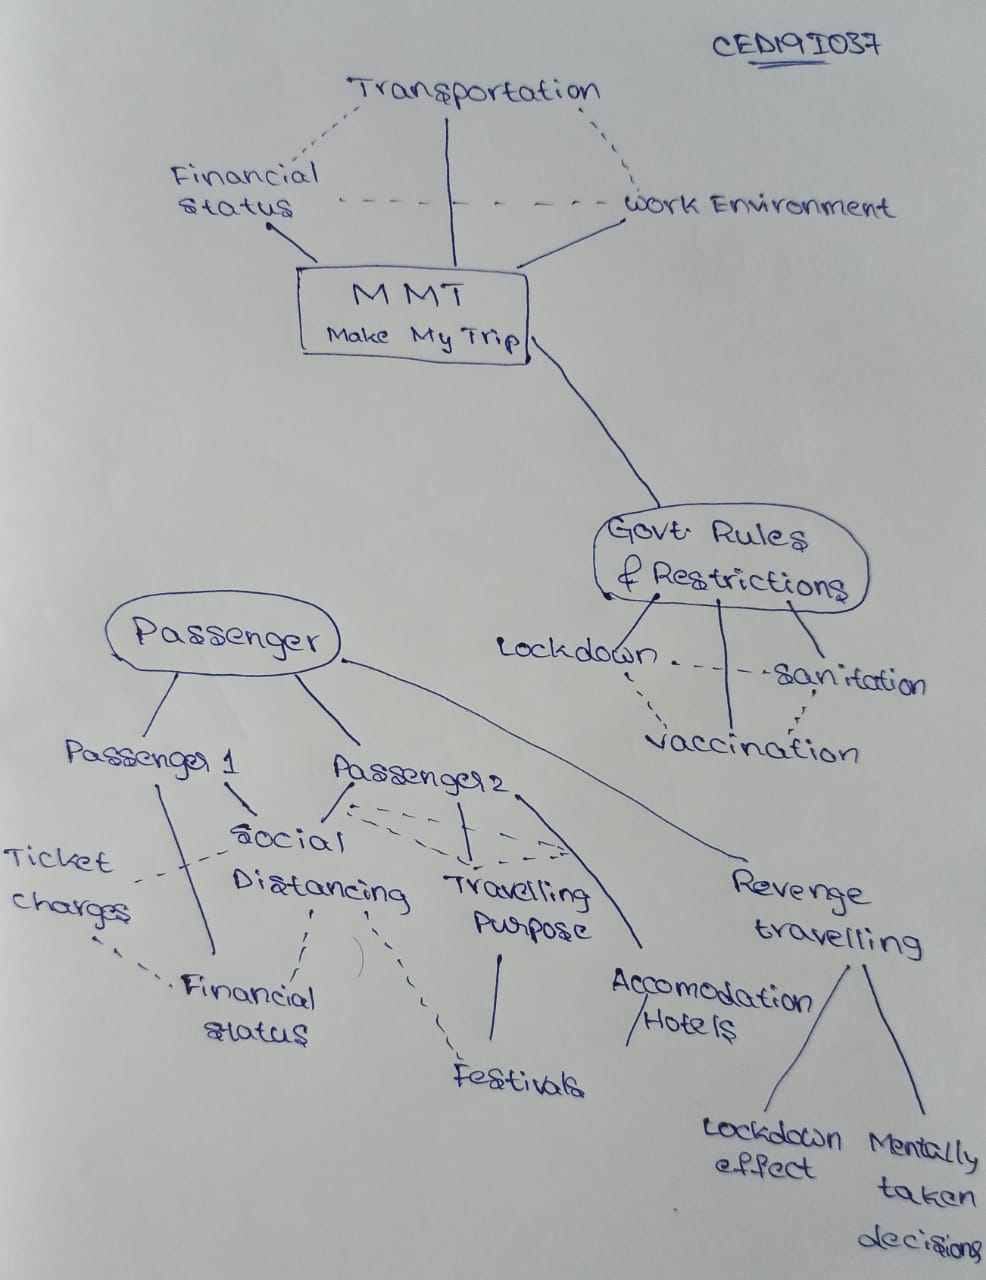 CED19I037
Transportation
Financial
status
Work Environment
MMT
Make My Trip
Govt. Rules
& Restrictions
Lockdown
Sanitation
Vaccination
Passenger
Passenger 1
Passenger 2
Social
Distancing
Ticket
charges
Travelling
Purpose
Financial
status
Festivals
Accomodation
/Hotels
Revenge
travelling
Lockdown
effect
Mentally
taken
decisions